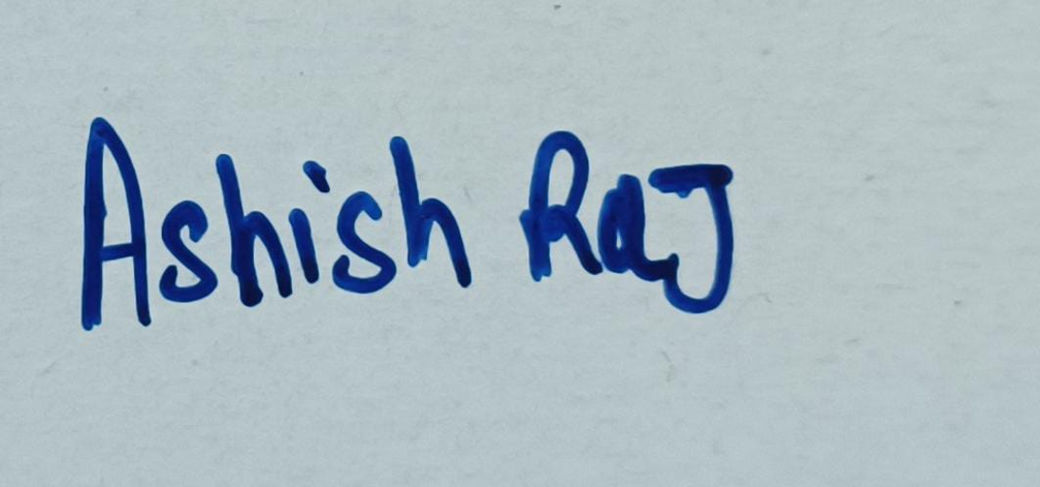 Ashish RaJ